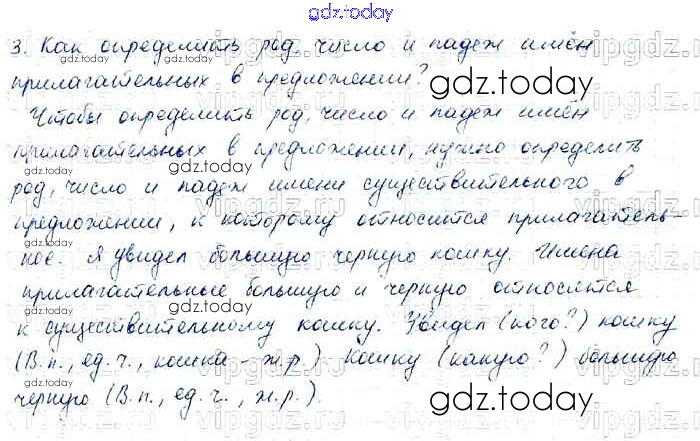 gdz.today
3. Как определить род, число и падеж имён
прилагательных в предложении?
Чтобы определить род, число и падеж имён
прилагательных в предложении, нужно определить
род, число и падеж имени существительного в
предложении, к которому относится прилагатель-
ное. Я увидел большую черную кошку. Имена
прилагательные большую и черную относятся
к существительному кошку. Увидел (кого?) кошку
(В.п., ед.ч., кошка - ж.р.). Кошку (какую?) большую
черную (В.п., ед.ч., ж.р.).
gdz.today